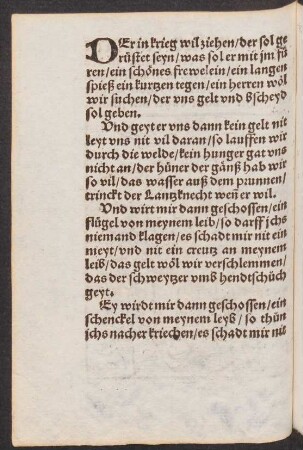 DEr in krieg wil ziehen/der sol ge
rüstet seyn/was sol er mit jm fü
ren/ein schönes frewelein/ein langen
spieß ein kurtzen tegen/ein herren wöl
wir suchen/der vns gelt vnd bscheyd
sol geben.
Vnd geyt er vns dann kein gelt nit
leyt vns nit vil daran/so lauffen wir
durch die welde/kein hunger gat vns
nicht an/der hüner der gänß hab wir
so vil/das wasser auß dem prunnen/
trinckt der Lantzknecht weñ er wil.
Vnd wirt mir dann geschossen/ein
flügel von meynem leib/so darff jchs
niemand klagen/es schadt mir nit ein
meyt/vnd nit ein creutz an meynem
leib/das gelt wöl wir verschlemmen/
das der schweytzer vmb hendtschüch
geyt.
Ey wirdt mir dann geschossen/ein
schenckel von meynem leyb/so thün
jchs nacher kriechen/es schadt mir nit